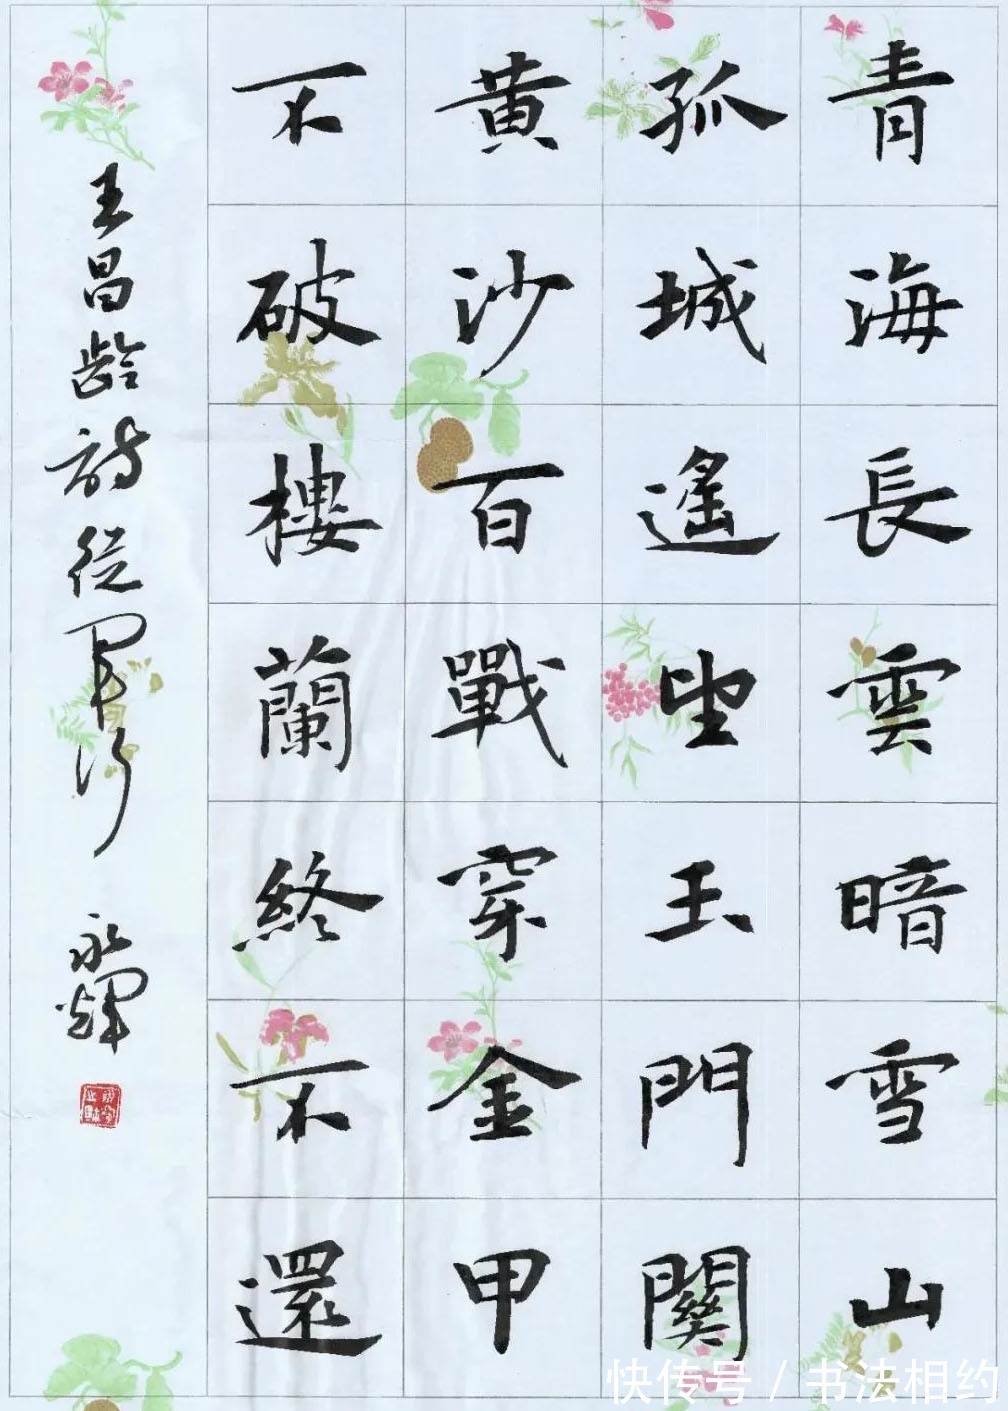 青海長雲暗雪山
孤城遙望玉門關
黄沙百戰穿金甲
不破樓蘭終不還
王昌齡詩從軍行 永輝
快传号 / 书法相约